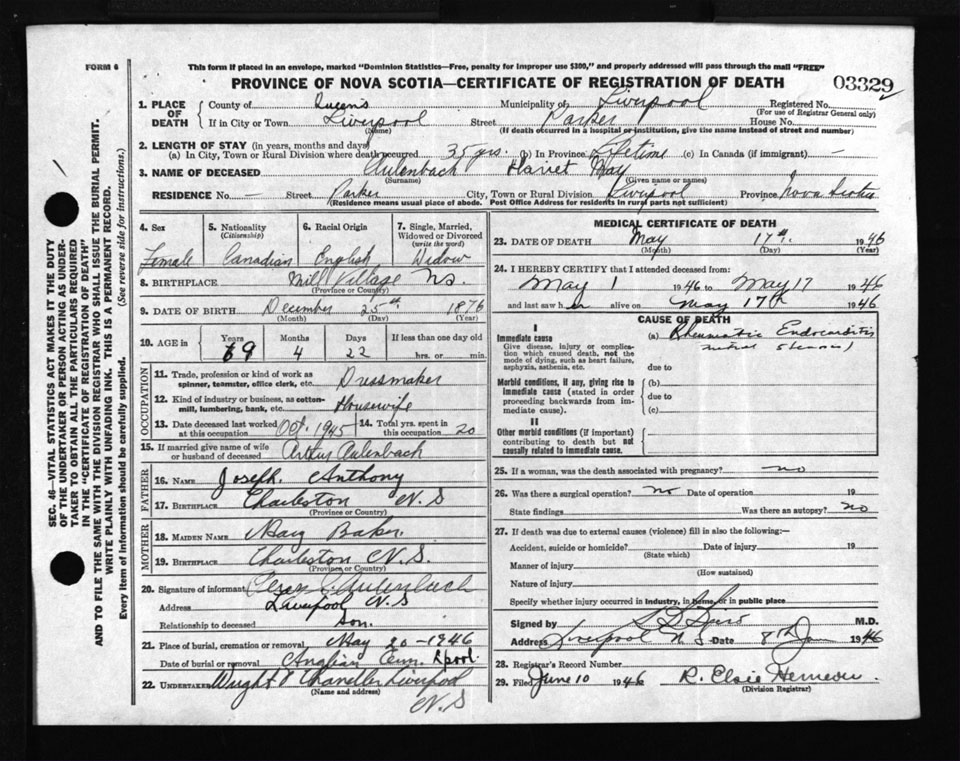 FORM 6
This form if placed in an envelope, marked "Dominion Statistics—Free, penalty for improper use $300," and properly addressed will pass through the mail "FREE"
PROVINCE OF NOVA SCOTIA—CERTIFICATE OF REGISTRATION OF DEATH
03329
1. PLACE OF DEATH
County of Queens Municipality of Liverpool Registered No.
(For use of Registrar General only)
If in City or Town Liverpool Street Parker House No.
(Name) (If death occurred in a hospital or institution, give the name instead of street and number)
2. LENGTH OF STAY (in years, months and days)
(a) In City, Town or Rural Division where death occurred 35 yrs. (b) In Province Lifetime (c) In Canada (if immigrant) —
3. NAME OF DECEASED Aulenbach Hariet May
(Surname) (Given name or names)
RESIDENCE No. — Street Parker City, Town or Rural Division Liverpool Province Nova Scotia
(Residence means usual place of abode. Post Office Address for residents in rural parts not sufficient)
SEC. 46—VITAL STATISTICS ACT MAKES IT THE DUTY
OF THE UNDERTAKER OR PERSON ACTING AS UNDER-
TAKER TO OBTAIN ALL THE PARTICULARS REQUIRED
IN THE "CERTIFICATE OF REGISTRATION OF DEATH"
AND TO FILE THE SAME WITH THE DIVISION REGISTRAR WHO SHALL ISSUE THE BURIAL PERMIT.
WRITE PLAINLY WITH UNFADING INK. THIS IS A PERMANENT RECORD.
Every item of information should be carefully supplied. (See reverse side for instructions.)
4. Sex
Female
5. Nationality
(Citizenship)
Canadian
6. Racial Origin
English
7. Single, Married,
Widowed or Divorced
(write the word)
Widow
8. BIRTHPLACE Mill Village NS.
(Province or Country)
9. DATE OF BIRTH December 25th 1876
(Month) (Day) (Year)
10. AGE in
Years Months Days If less than one day old
69 4 22 hrs. or min.
OCCUPATION
11. Trade, profession or kind of work as
spinner, teamster, office clerk, etc. Dressmaker
12. Kind of industry or business, as cotton-
mill, lumbering, bank, etc. Housewife
13. Date deceased last worked
at this occupation Oct. 1945
14. Total yrs. spent in
this occupation 20
15. If married give name of wife
or husband of deceased Arthur Aulenbach
FATHER
16. NAME Joseph. Anthony
17. BIRTHPLACE Charleston N.S
(Province or Country)
MOTHER
18. MAIDEN NAME Mary Baker.
19. BIRTHPLACE Charleston N.S.
(Province or Country)
20. Signature of informant Aulenbach
Address Liverpool N.S
Relationship to deceased Son.
21. Place of burial, cremation or removal May 20—1946
Date of burial or removal Anglian Cem. Lpool.
22. UNDERTAKER Wright & Chandler Liverpool
(Name and address) N.S
MEDICAL CERTIFICATE OF DEATH
23. DATE OF DEATH May 17th. 1946
(Month) (Day) (Year)
24. I HEREBY CERTIFY that I attended deceased from:
May 1 1946 to May 17 1946
and last saw her alive on May 17th 1946
CAUSE OF DEATH
I
Immediate cause
Give disease, injury or complica-
tion which caused death, not the
mode of dying, such as heart failure,
asphyxia, asthenia, etc.
(a) Rheumatic Endocarditis
mitral stenosis)
due to
Morbid conditions, if any, giving rise to
immediate cause (stated in order
proceeding backwards from im-
mediate cause).
(b)
due to
(c)
II
Other morbid conditions (if important)
contributing to death but not
causally related to immediate cause.
25. If a woman, was the death associated with pregnancy? no
26. Was there a surgical operation? no Date of operation 19
State findings Was there an autopsy? no
27. If death was due to external causes (violence) fill in also the following:—
Accident, suicide or homicide? Date of injury 19
(State which)
Manner of injury
(How sustained)
Nature of injury
Specify whether injury occurred in industry, in home, or in public place
Signed by M.D.
Address Liverpool N.S. Date 8th Jun 1946
28. Registrar's Record Number
29. Filed June 10 1946 R. Elsie
(Division Registrar)